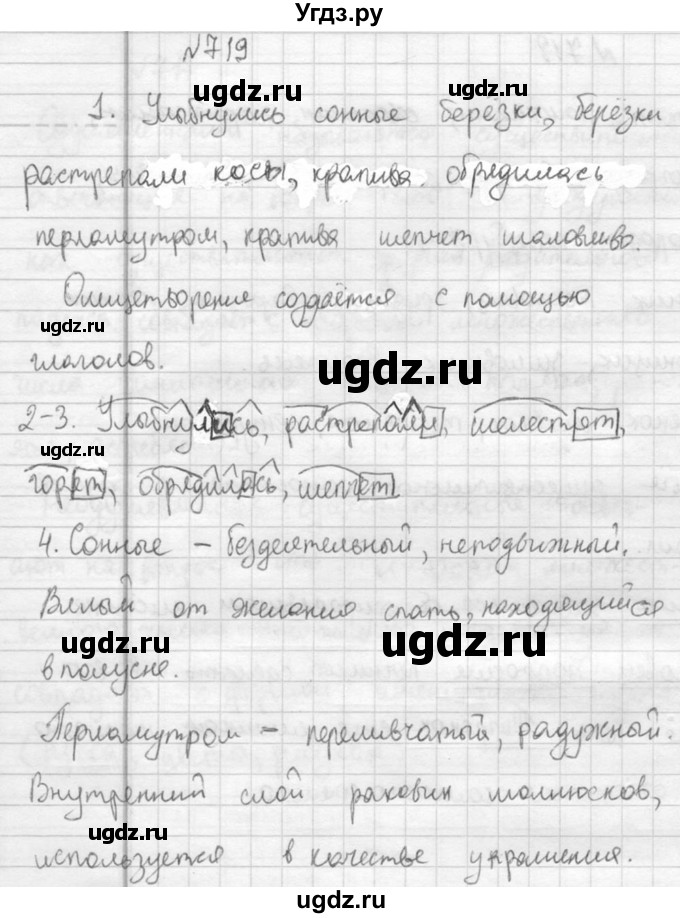 Угдз.ру
№719
1. Улыбнулись сонные берёзки, берёзки
растрепали косы, крапива обрядилась
перламутром, крапива шепчет шаловливо.
Олицетворение создаётся с помощью
глаголов.
2-3. Улыбнулись, растрепали, шелестят,
горят, обрядилась, шепчет
4. Сонные – бездеятельный, неподвижный.
Вялый от желания спать, находящийся
в полусне.
Перламутром – переливчатый, радужный.
Внутренний слой раковин моллюсков,
используется в качестве украшения.
ugdz.ru
ugdz.ru
ugdz.ru
ugdz.ru
ugdz.ru
ugdz.ru
ugdz.ru
ugdz.ru
ugdz.ru
ugdz.ru